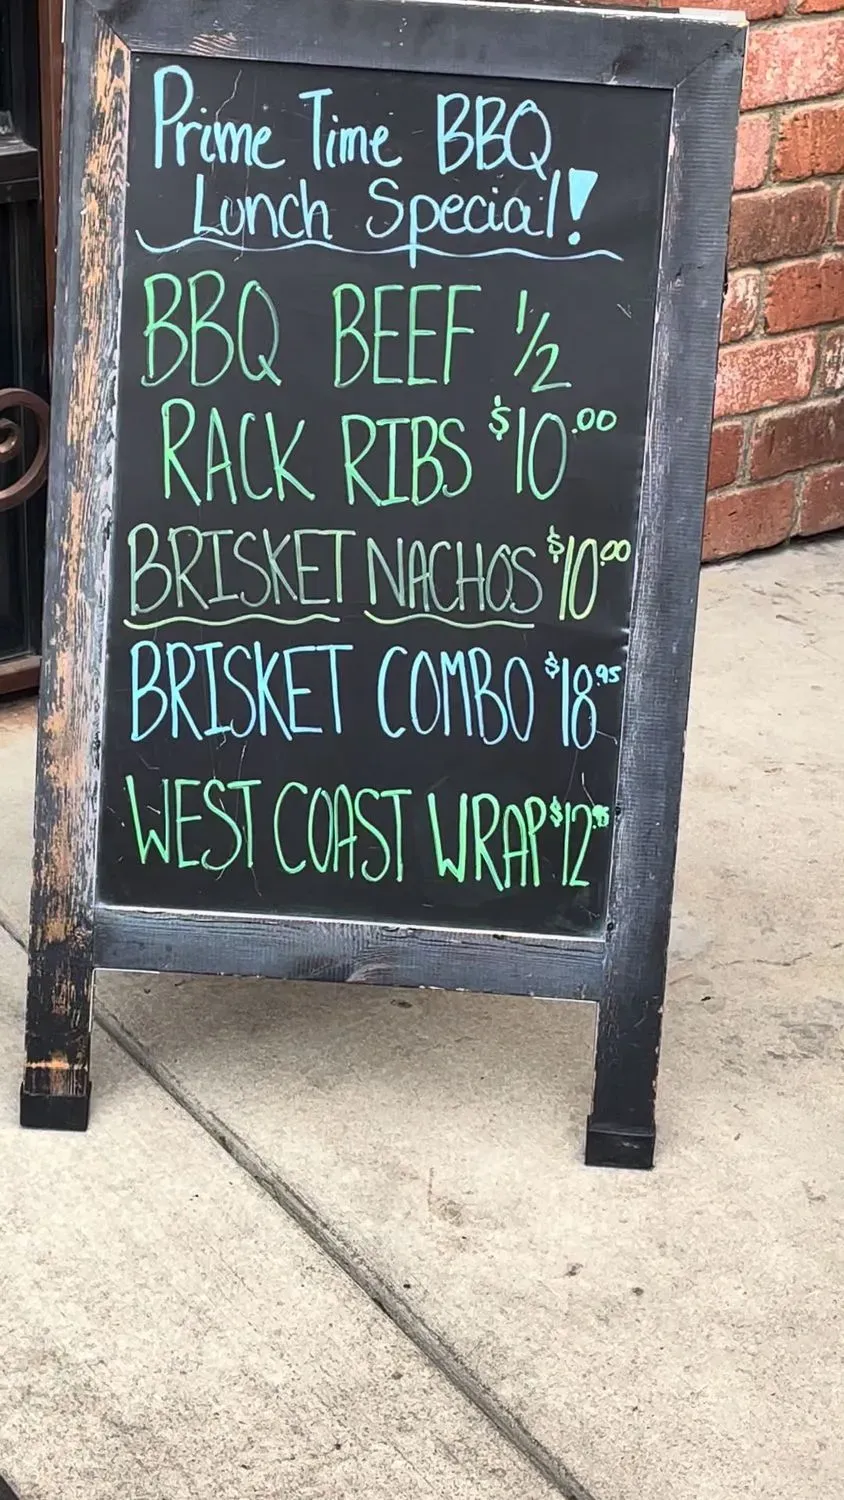 Prime Time BBQ
Lunch Special!
BBQ BEEF 1/2
RACK RIBS $10.00
BRISKET NACHOS $10.00
BRISKET COMBO $18.95
WEST COAST WRAP $12.95